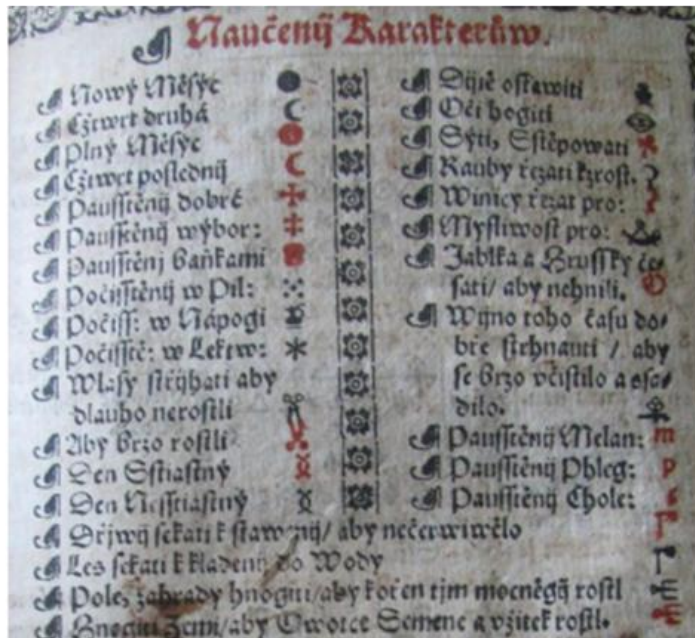 Naučenij Karakterůw.
Nowý Měsýc
Cžtwrt druhá
Plný Měsýc
Cžtwrt poslednij
Pausstěnij dobré
Pausstěnij wýbor:
Pausstěnj Baňkami
Počisstěnij w Pil:
Počiss: w Nápogi
Počisstě: w Lektw:
Wlasy střijhati aby
dlauho nerostli
Aby brzo rostli
Den Sstiastný
Den Nesstiastný
Dijtě ostawiti
Oči hogiti
Sýti, Sstěpowati
Rauby řezati k zrost.
Winicy řezat pro:
Mysliwost pro:
Jablka a Hrussky če-
sati/ aby nehnili.
Wijno toho času do-
bře strhnauti / aby
se brzo včistilo a osa-
dilo.
Pausstěnij Melan: m
Pausstěnij Phleg: p
Pausstěnij Chole:
Dřjwij sekati k stawenij/ aby nečerwiwělo
Les sekati k kladenij do Wody
Pole, zahrady hnogiti/aby kořen tjm mocněgij rostl
Hnogiti Zemi/aby Owotce Semene a vžitek rostl.